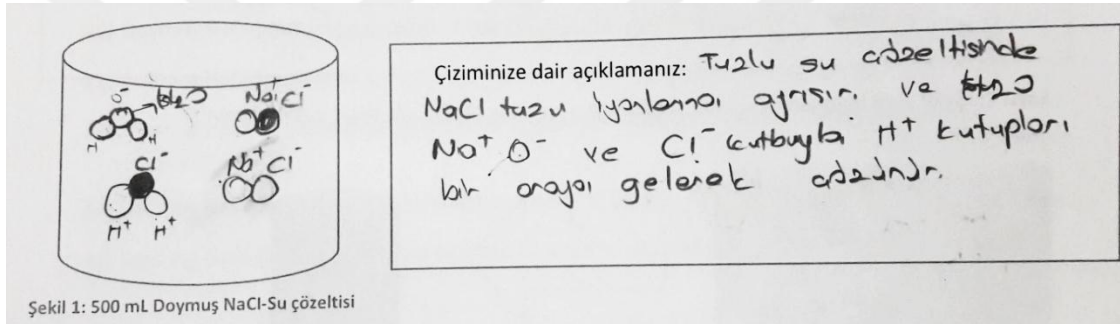 O⁻
H₂O
H
H
Na⁺Cl⁻
Cl⁻
H⁺ H⁺
Na⁺ Cl⁻
Şekil 1: 500 mL Doymuş NaCl-Su çözeltisi
Çiziminize dair açıklamanız: Tuzlu su çözeltisinde
NaCl tuzu iyonlarına ayrışır. ve H₂O
Na⁺ O⁻ ve Cl⁻ kutbuyla H⁺ kutupları
bir araya gelerek çözünür.